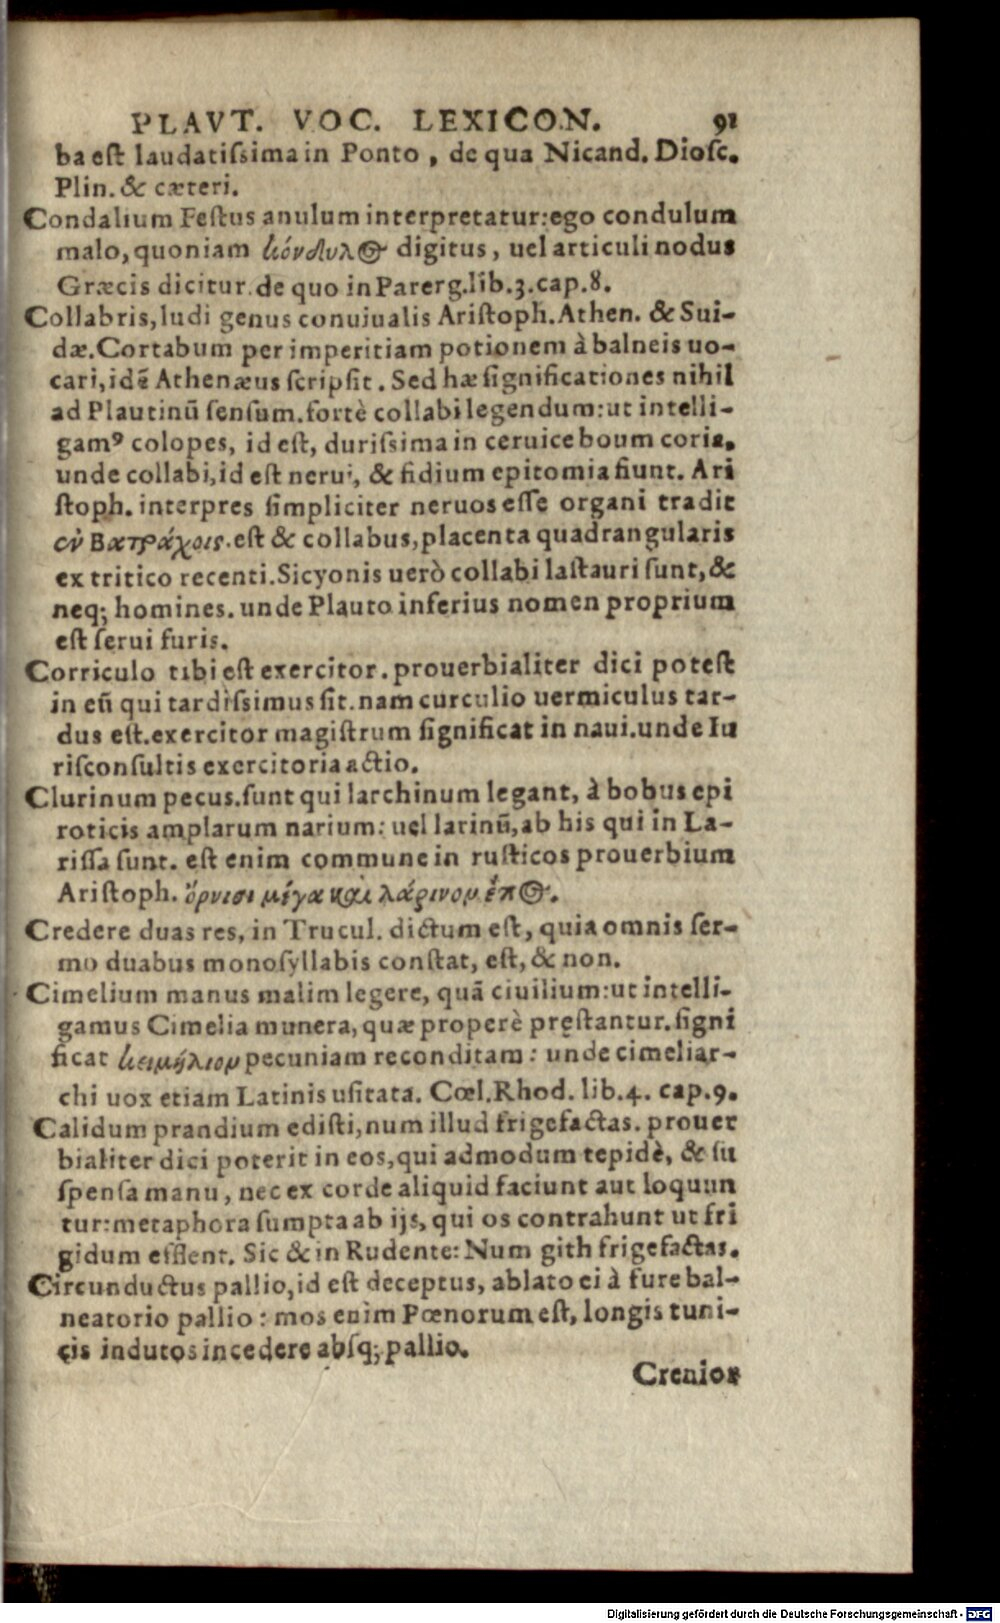 PLAVT. VOC. LEXICON. 91
ba est laudatiſsima in Ponto, de qua Nicand. Dioſc.
Plin. & cæteri.
Condalium Feſtus anulum interpretatur: ego condulum
malo, quoniam κόνδυλος digitus, uel articuli nodus
Græcis dicitur. de quo in Parerg. lib. 3. cap. 8.
Collabris, ludi genus conuiualis Ariſtoph. Athen. & Sui-
dæ. Cortabum per imperitiam potionem à balneis uo-
cari, idẽ Athenæus ſcripſit. Sed hæ ſignificationes nihil
ad Plautinũ ſenſum. fortè collabi legendum: ut intelli-
gamꝰ colopes, id eſt, duriſsima in ceruice boum coria.
unde collabi, id eſt nerui, & fidium epitomia fiunt. Ari
ſtoph. interpres ſimpliciter neruos eſſe organi tradit
ἐν Βατράχοις. eſt & collabus, placenta quadrangularis
ex tritico recenti. Sicyonis uerò collabi laſtauri ſunt, &
neq; homines. unde Plauto inferius nomen proprium
eſt ſerui furis.
Corriculo tibi eſt exercitor. prouerbialiter dici poteſt
in eũ qui tardiſsimus ſit. nam curculio uermiculus tar-
dus eſt. exercitor magiſtrum ſignificat in naui. unde Iu
riſconſultis exercitoria actio.
Clurinum pecus. ſunt qui larchinum legant, à bobus epi
roticis amplarum narium: uel larinũ, ab his qui in La-
riſſa ſunt. eſt enim commune in ruſticos prouerbium
Ariſtoph. ὄρνισι μέγα καὶ λάρινον ἔπος.
Credere duas res, in Trucul. dictum eſt, quia omnis ſer-
mo duabus monoſyllabis conſtat, eſt, & non.
Cimelium manus malim legere, quã ciuilium: ut intelli-
gamus Cimelia munera, quæ properè pręſtantur. ſigni
ficat κειμήλιον pecuniam reconditam: unde cimeliar-
chi uox etiam Latinis uſitata. Cœl. Rhod. lib. 4. cap. 9.
Calidum prandium ediſti, num illud frigefactas. prouer
bialiter dici poterit in eos, qui admodum tepidè, & ſu
ſpenſa manu, nec ex corde aliquid faciunt aut loquun
tur: metaphora ſumpta ab ijs, qui os contrahunt ut fri
gidum efflent. Sic & in Rudente: Num gith frigefactas.
Circunductus pallio, id eſt deceptus, ablato ei à fure bal-
neatorio pallio: mos enim Pœnorum eſt, longis tuni-
cis indutos incedere abſq; pallio.
Crenior
Digitalisierung gefördert durch die Deutsche Forschungsgemeinschaft - DFG